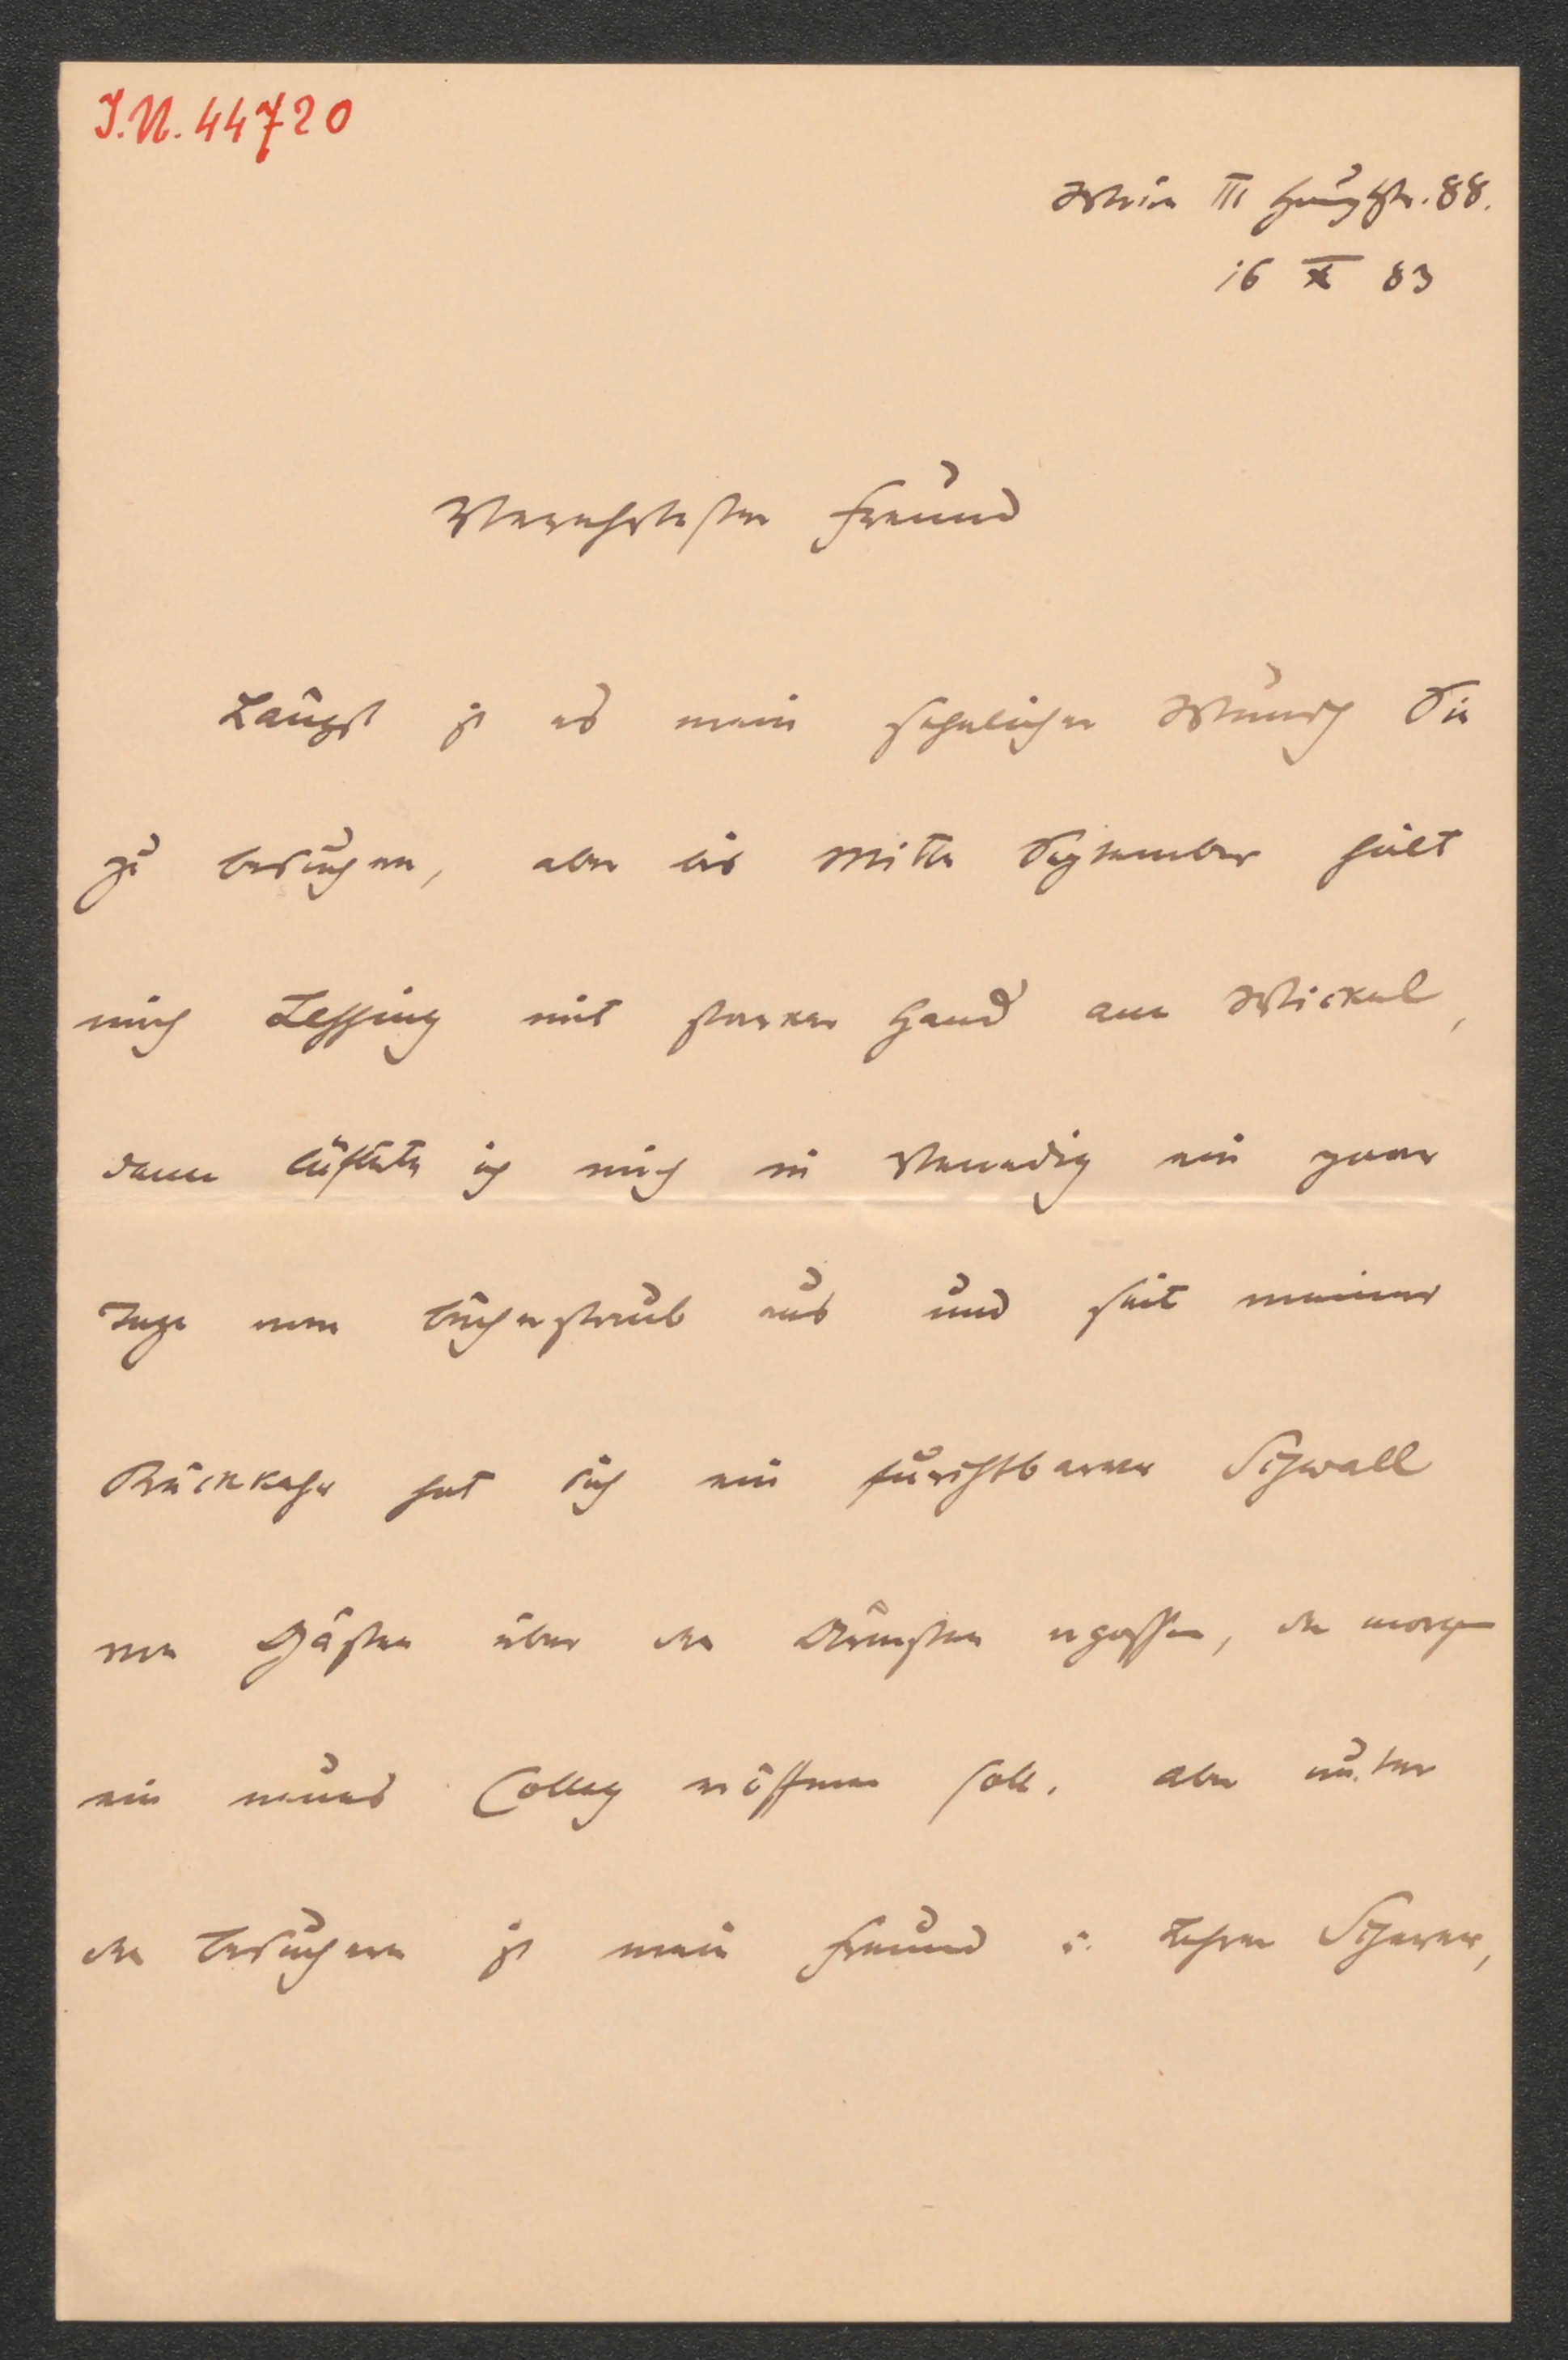 I.N. 44720
Wien III Hauptstr. 88.
16 X 83
Verehrtester Freund
Längst ist es mein sehnlicher Wunsch Sie
zu besuchen, aber bis Mitte September hielt
mich Lessing mit starker Hand am Wickel,
dann lüftete ich mich in Venedig ein paar
Tage vom Bücherstaub aus und seit meiner
Rückkehr hat sich ein furchtbarer Schwall
von Gästen über den Ärmsten ergossen, der morgen
ein neues Colleg eröffnen soll. Aber unter
den Besuchern ist mein Freund u. Lehrer Scherer,